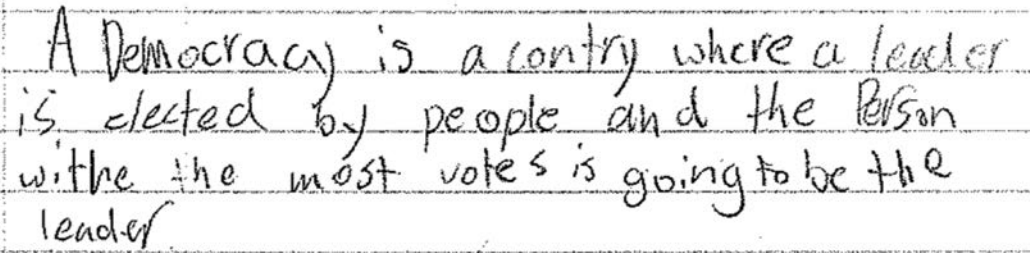 A Democracy is a contry where a leader
is elected by people and the Person
withe the most votes is going to be the
leader